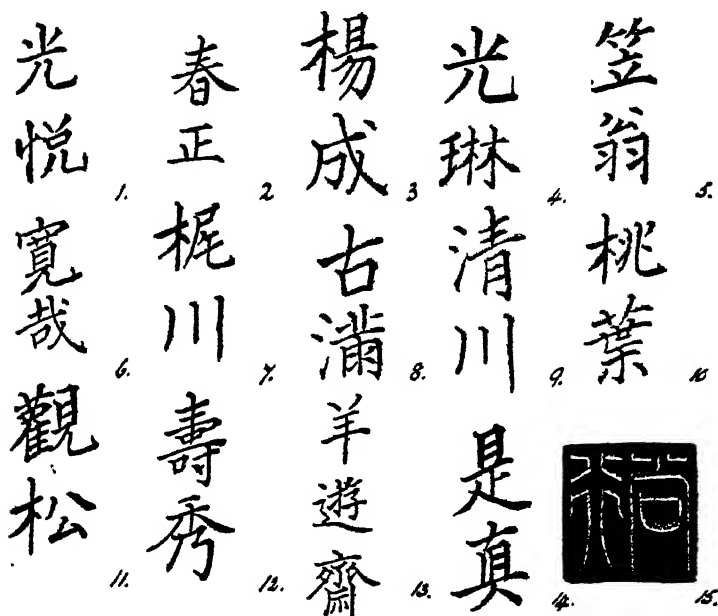 光悦 1.
春正 2
楊成 3
光琳 4.
笠翁 5.
寛哉 6.
梶川 7.
古満 8.
清川 9.
桃葉 10
觀松 11.
壽秀 12.
羊遊齋 13.
是真 14.
15.